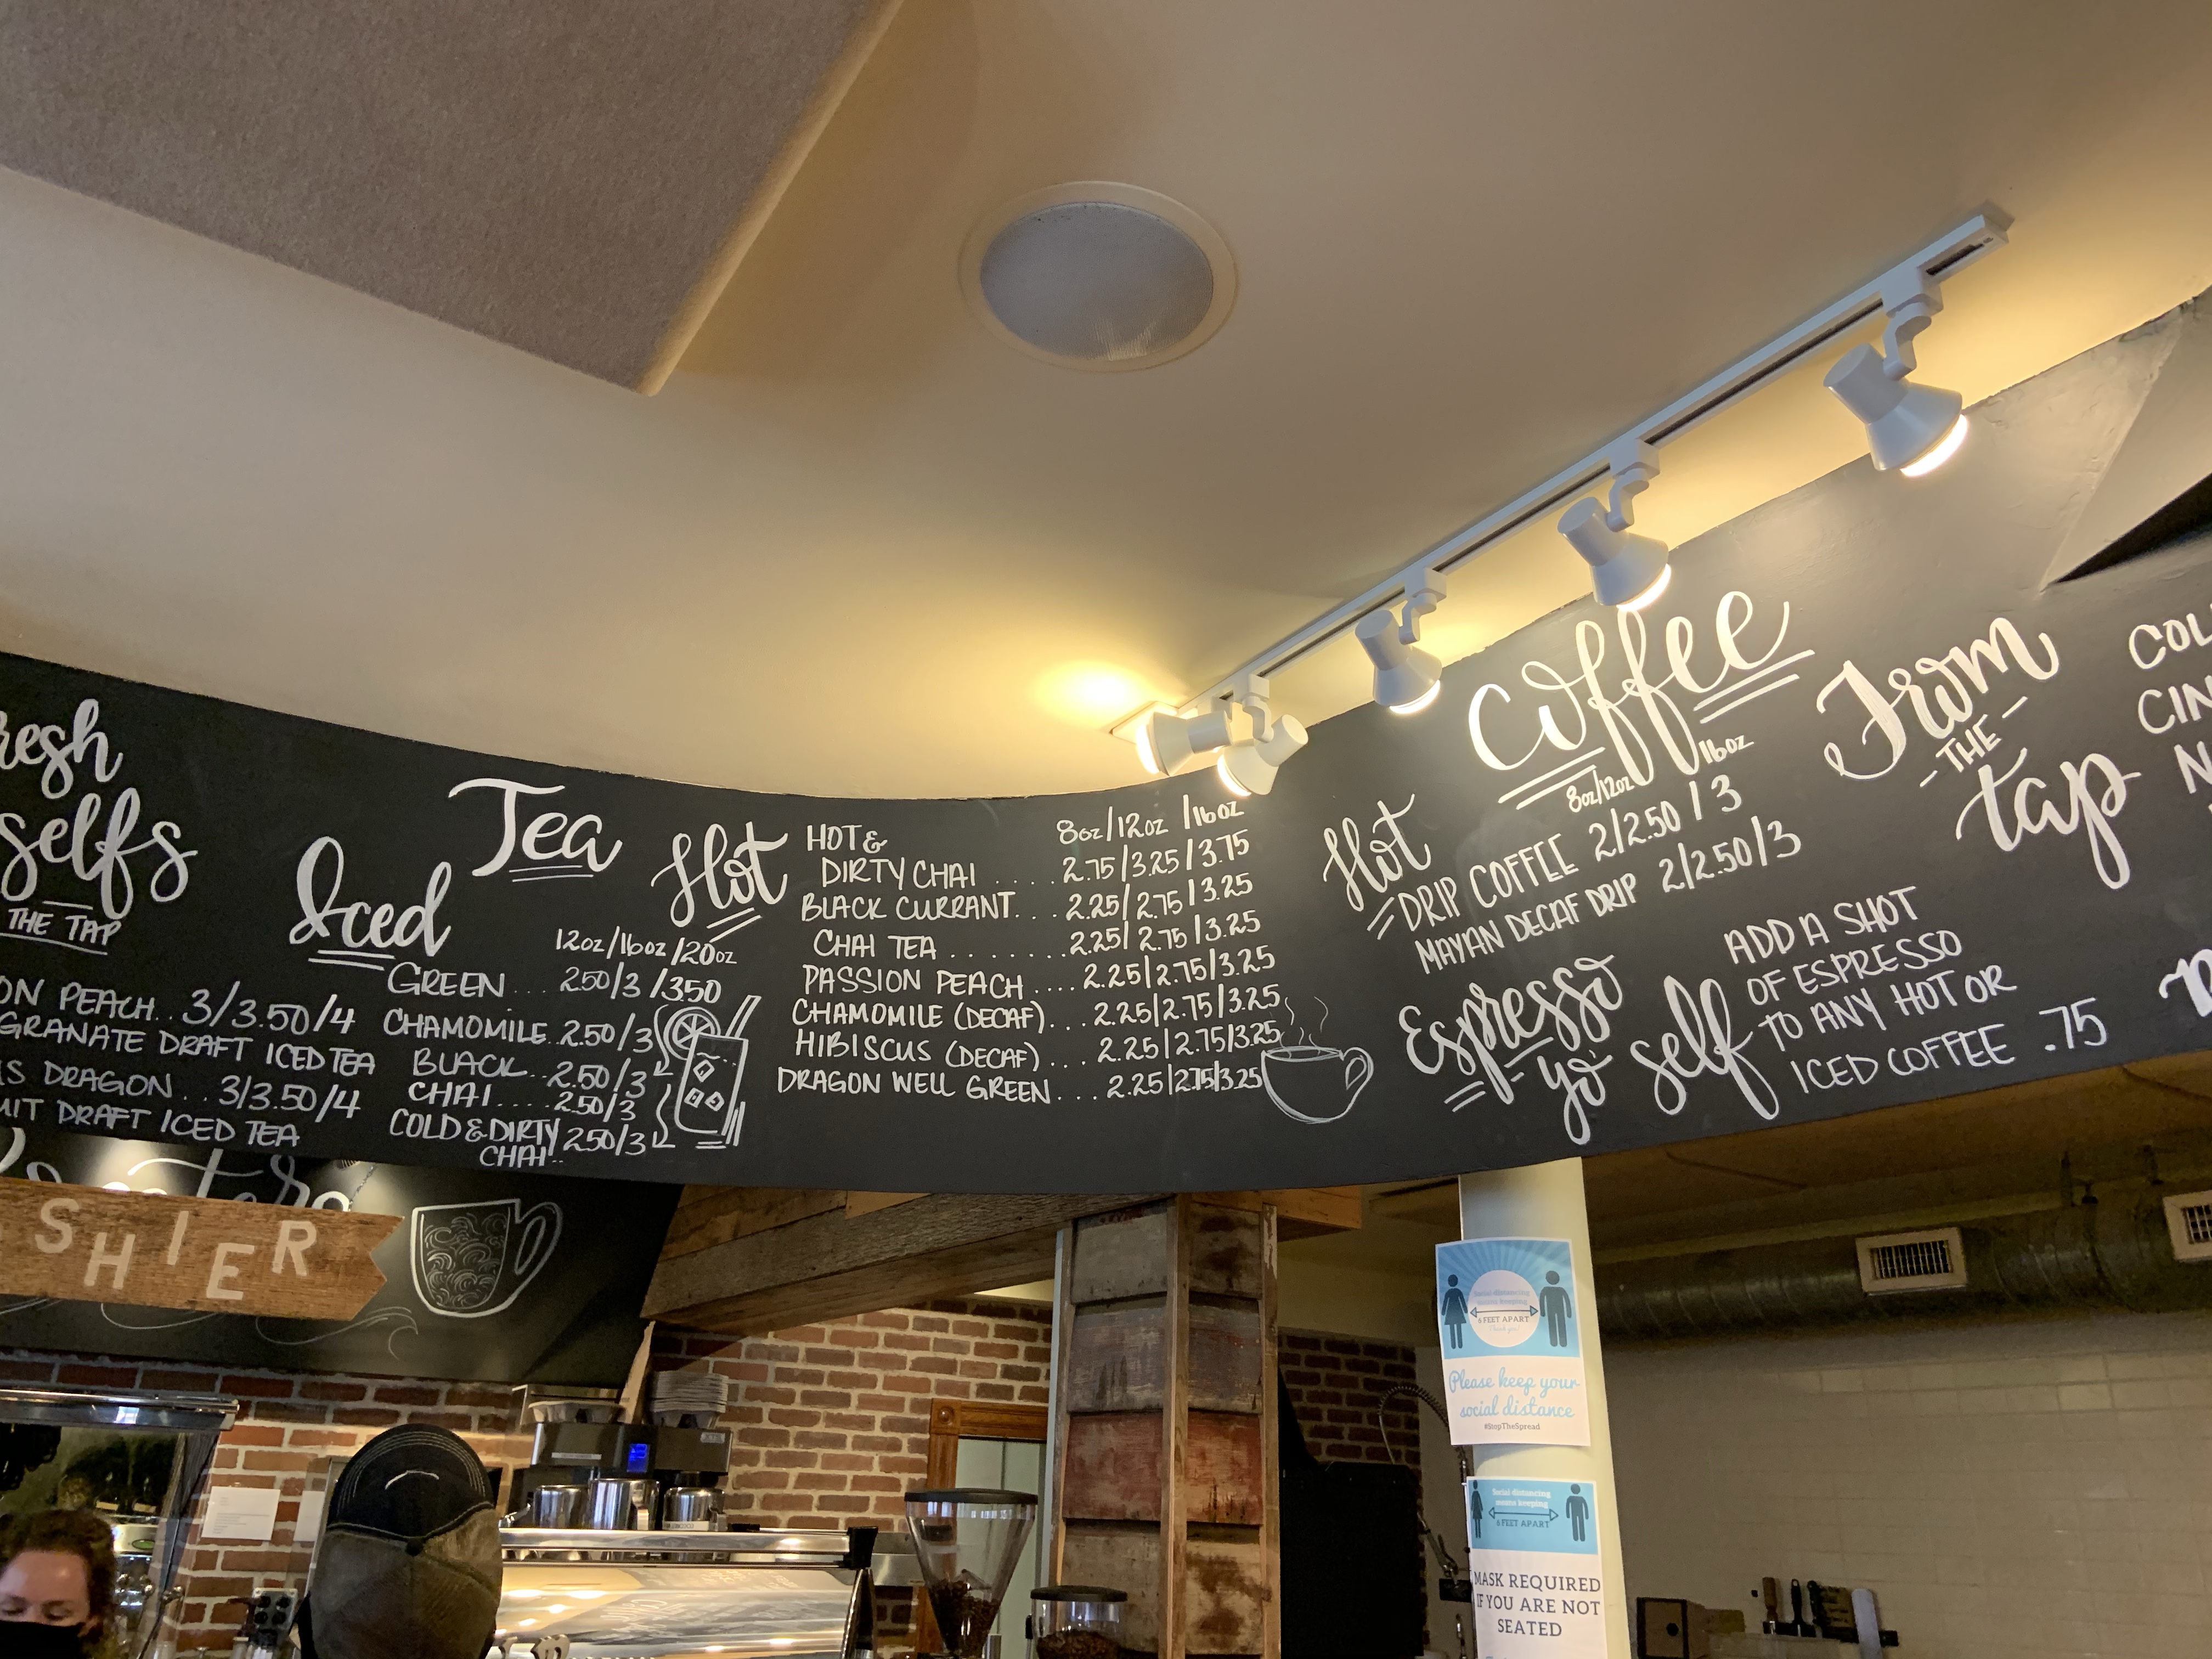 selfs
THE TAP
PEACH.. 3/3.50/4
DRAFT ICED TEA
DRAGON.. 3/3.50/4
DRAFT ICED TEA
Tea
Iced
12oz/16oz/20oz
GREEN... 2.50/3/3.50
CHAMOMILE.. 2.50/3
BLACK... 2.50/3
CHAI.... 2.50/3
COLD & DIRTY 2.50/3
CHAI..
Hot
8oz/12oz/16oz
HOT &
DIRTY CHAI .... 2.75/3.25/3.75
BLACK CURRANT... 2.25/2.75/3.25
CHAI TEA ....... 2.25/2.75/3.25
PASSION PEACH .... 2.25/2.75/3.25
CHAMOMILE (DECAF)... 2.25/2.75/3.25
HIBISCUS (DECAF)... 2.25/2.75/3.25
DRAGON WELL GREEN... 2.25/2.75/3.25
Coffee
Hot
8oz/12oz 16oz
DRIP COFFEE 2/2.50/3
MAYAN DECAF DRIP 2/2.50/3
Espresso
yo' self
ADD A SHOT
OF ESPRESSO
TO ANY HOT OR
ICED COFFEE .75
From
- THE -
tap
SHIER
Social distancing
means keeping
6 FEET APART
Thank you!
Please keep your
social distance
#StopTheSpread
Social distancing
means keeping
6 FEET APART
MASK REQUIRED
IF YOU ARE NOT
SEATED